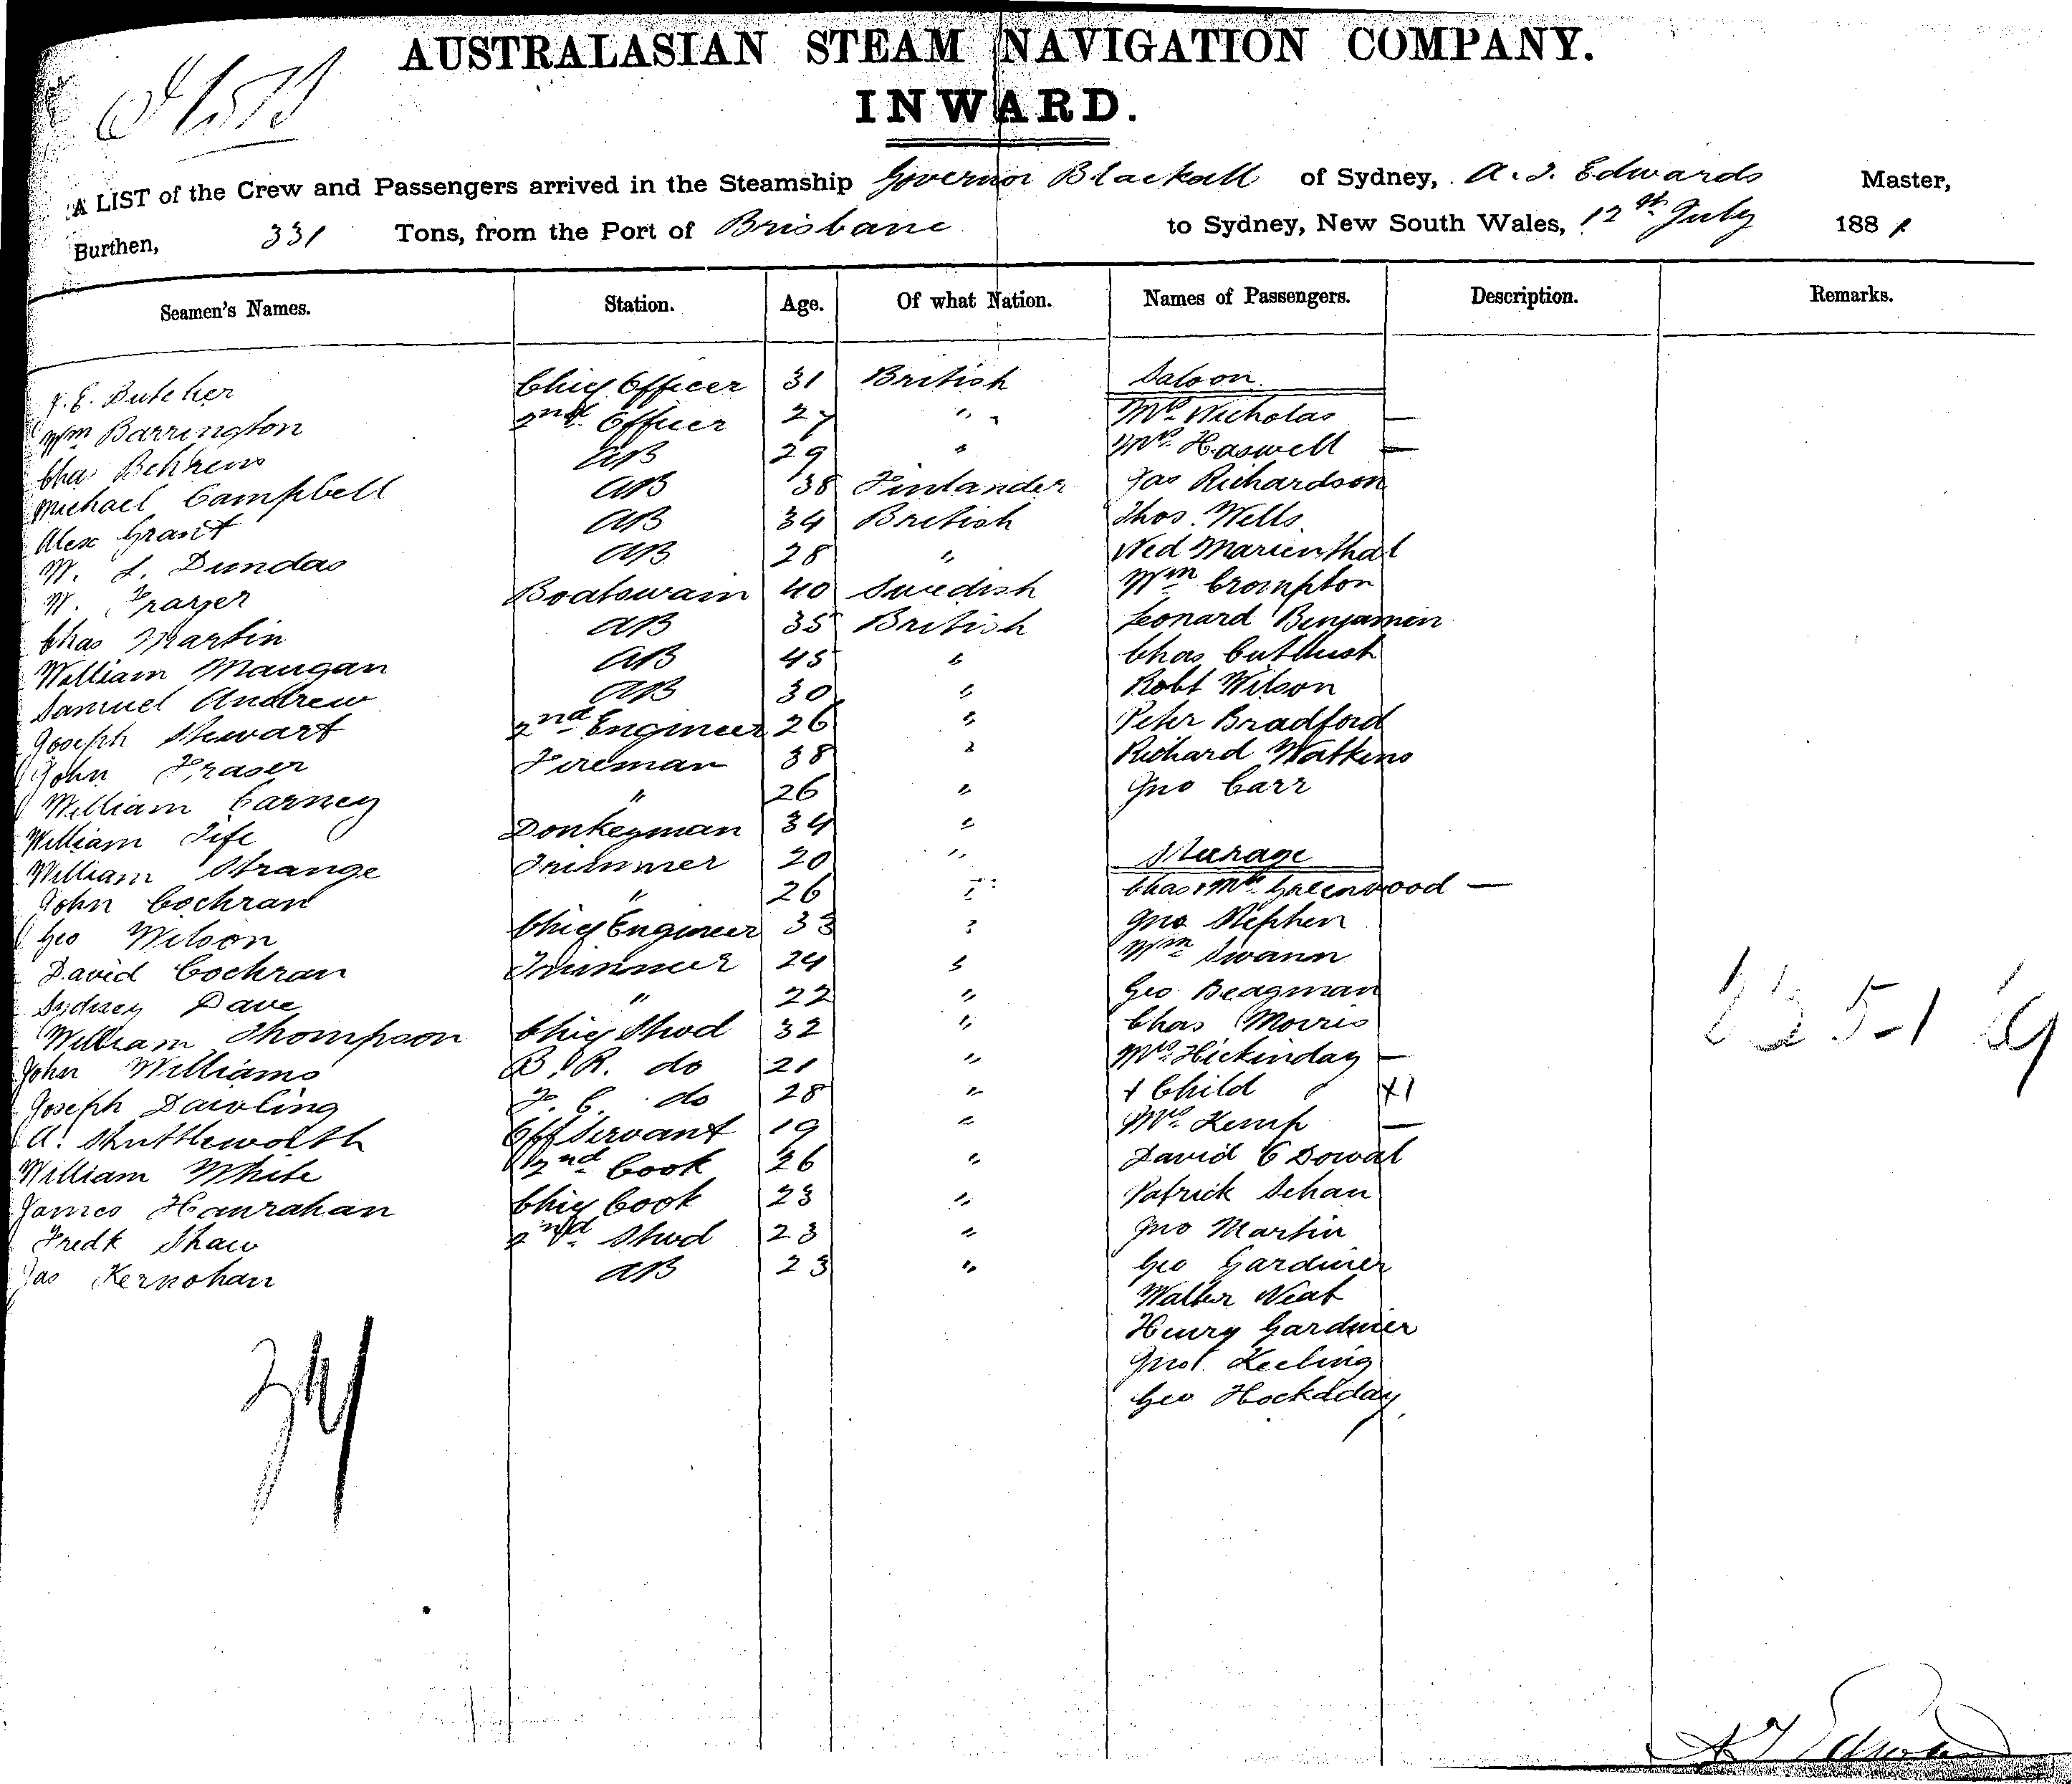 AUSTRALASIAN STEAM NAVIGATION COMPANY.
INWARD.
A LIST of the Crew and Passengers arrived in the Steamship Governor Blackall of Sydney, A. J. Edwards Master,
Burthen, 331 Tons, from the Port of Brisbane to Sydney, New South Wales, 12th July 1881
Seamen's Names. Station. Age. Of what Nation. Names of Passengers. Description. Remarks.
Saloon
E. Butcher Chief Officer 31 British
Wm Barrington 2nd Officer 27 " " Mrs Nicholas —
Chas Behrens AB 29 " Mrs Haswell —
Michael Campbell AB 38 Finlander Jas Richardson
Alex Grant AB 34 British Thos. Wells
W. L. Dundas AB 28 " Ned Marienthal
W. Frazer Boatswain 40 Swedish Wm Crompton
Chas Martin AB 35 British Leonard Benjamin
William Maugan AB 45 " Chas Cutbush
Samuel Andrew AB 30 " Robt Wilson
Joseph Stewart 2nd Engineer 26 " Peter Bradford
John Fraser Fireman 38 " Richard Watkins
William Carney " 26 " Jno Carr
William Fife Donkeyman 34 "
William Strange Trimmer 20 " Steerage
John Cochran " 26 " Chas & Mrs Greenwood —
Geo Wilson Chief Engineer 33 " Jno Stephen
David Cochran Trimmer 24 " Wm Swann
Sydney Dave " 22 " Geo Beagman
William Thompson Chief Stwd 32 " Chas Morris
John Williams B. R. do 21 " Mrs Hickinday —
Joseph Dawling F. C. do 28 " + Child X1
A. Shuttleworth Off Servant 19 " Mrs Kemp —
William White 2nd Cook 26 " David C Dowal
James Hanrahan Chief Cook 23 " Patrick Sehan
Fredk Shaw 2nd Stwd 23 " Jno Martin
Jas Kernohan AB 23 " Geo Gardiner
Walter Neat
Henry Gardiner
Jno. Keeling
Geo Hockaday
34
A J Edwards